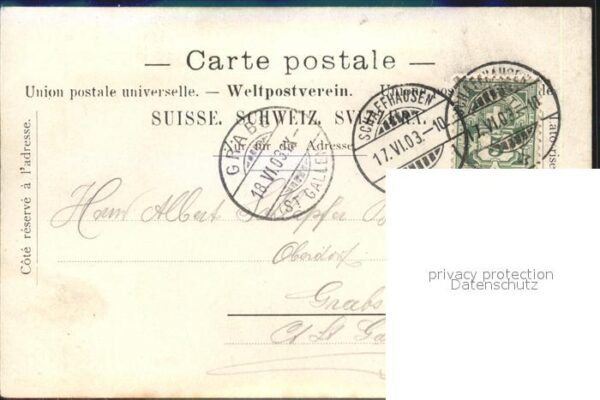 — Carte postale —
Union postale universelle. — Weltpostverein. — Unione postale
SUISSE. SCHWEIZ. SVIZZERA.
Nur für die Adresse
Côté réservé à l'adresse.
GRABS
18.VI.03.X-
(ST GALLEN)
SCHAFFHAUSEN
17.VI.03.-10
SCHAFFHAUSEN
17.VI.03.-10
Herrn Albert
Oberdorf
Grabs
Ct. St. Ga
privacy protection
Datenschutz